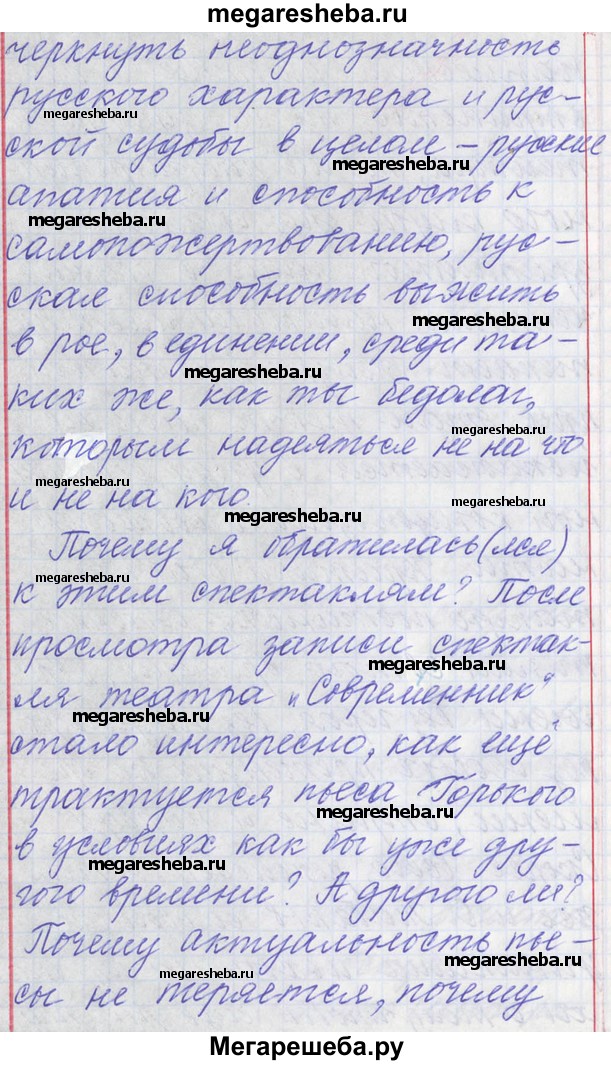 megaresheba.ru
черкнуть неоднозначность
русского характера и рус-
megaresheba.ru
ской судьбы в целом – русские
megaresheba.ru
апатия и способность к
megaresheba.ru
самопожертвованию, рус-
ская способность выжить
megaresheba.ru
в рое, в единении, среди та-
megaresheba.ru
ких же, как ты бедолаг,
которым надеяться не на что
и не на кого.
megaresheba.ru
megaresheba.ru
Почему я обратилась(лся)
megaresheba.ru
к этим спектаклям? После
просмотра записи спектак-
megaresheba.ru
ля театра „Современник"
megaresheba.ru
стало интересно, как ещё
трактуется пьеса Горького
megaresheba.ru
в условиях как бы уже дру-
megaresheba.ru
гого времени? А другого ли?
Почему актуальность пье-
megaresheba.ru
megaresheba.ru
сы не теряется, почему
Мегарешеба.ру